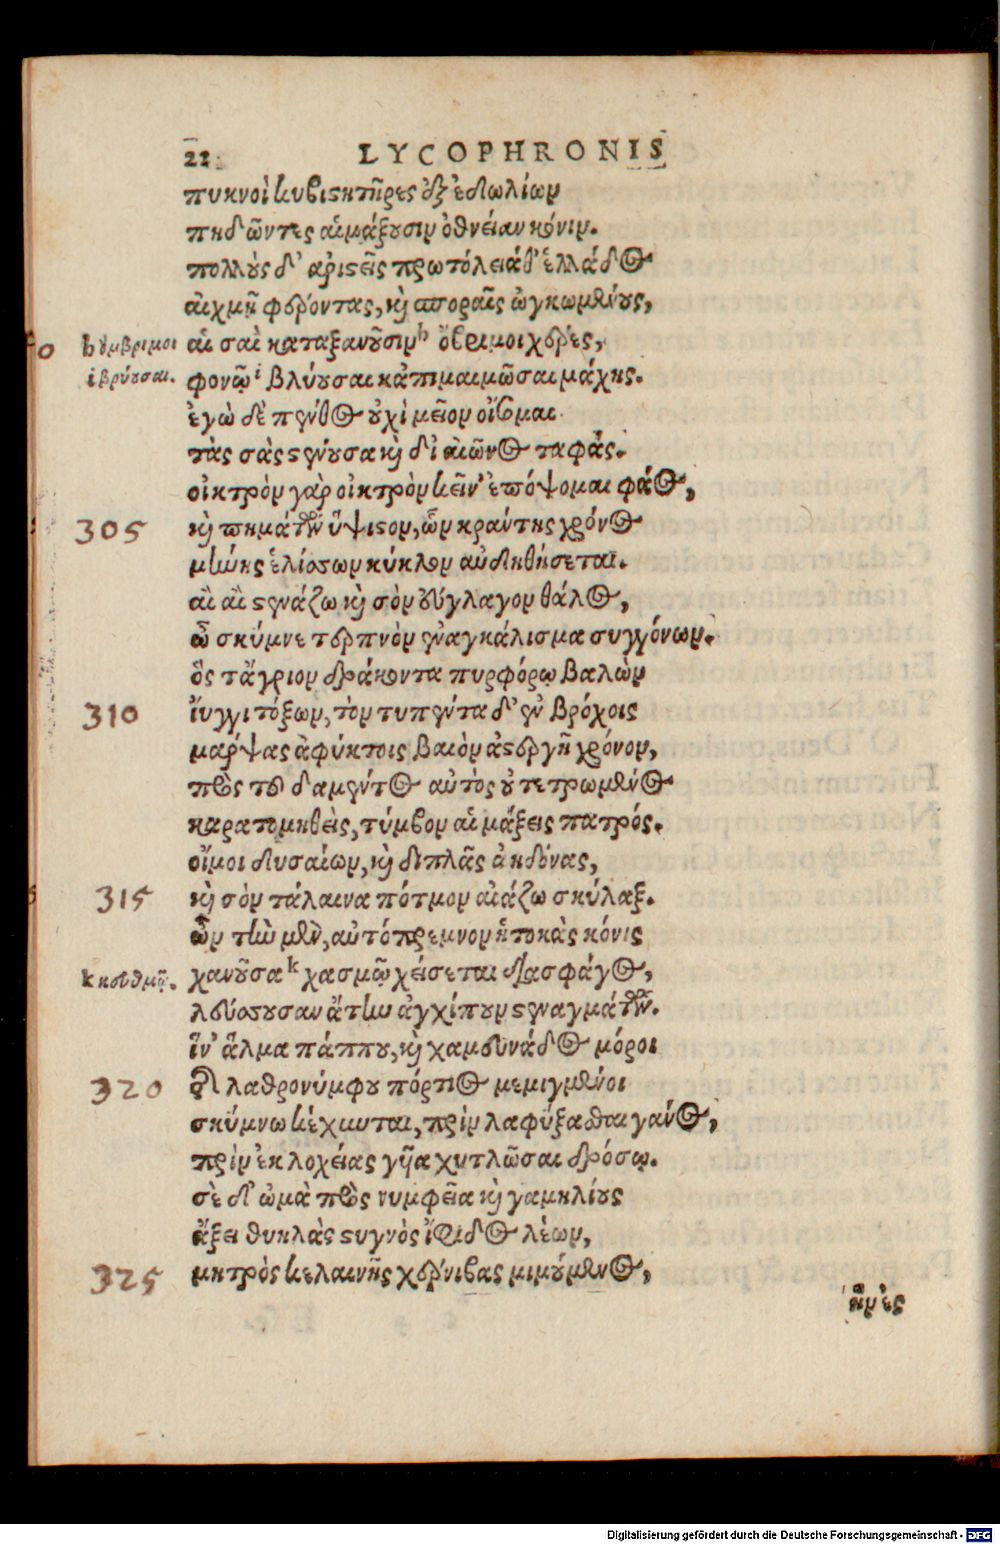 22 LYCOPHRONIS
πυκνοὶ κυβιστῆρες ἐξ ἑδωλίων
πηδῶντες αἱμάξουσιν ὀθνείαν κόνιν.
πολλοὺς δ' ἀριστεῖς πρωτόλειά θ' ἑλλάδος
αἰχμῇ φέροντας, καὶ σποραῖς ὠγκωμένους,
βὄμβριμοι αἱ σαὶ καταξανοῦσιν h ὄβριμοι χέρες,
i βρύουσαι. φονῷ i βλύουσαι κἀπιμαιμῶσαι μάχης.
ἐγὼ δὲ πένθος οὐχὶ μεῖον οἴσομαι
τὰς σὰς στένουσα καὶ δι' αἰῶνος ταφάς.
οἰκτρὸν γὰρ οἰκτρὸν κεῖν' ἐπόψομαι φάος,
305 καὶ πημάτων ὕψιστον, ὧν κραντὴς χρόνος
μήνης ἑλίσσων κύκλον αὐδηθήσεται.
αἲ αἲ στενάζω καὶ σὸν εὔγλαγον θάλος,
ὦ σκύμνε τερπνὸν ἐναγκάλισμα συγγόνων.
ὅς τ' ἄγριον δράκοντα πυρφόρῳ βαλὼν
310 ἴυγγι τόξων, τὸν τυπέντα δ' ἐν βρόχοις
μάρψας ἀφύκτοις βαιὸν ἀστεργῆ χρόνον,
πρὸς τοῦ δαμέντος αὐτὸς οὐ τετρωμένος
καρατομηθεὶς, τύμβον αἱμάξεις πατρός.
οἴμοι δυσαίων, καὶ διπλᾶς ἀηδόνας,
315 καὶ σὸν τάλαινα πότμον αἰάζω σκύλαξ.
ὧν τὴν μὲν, αὐτόπρεμνον ἡ τοκὰς κόνις
k κευθμῷ. χανοῦσα k χασμῷ χείσεται διασφάγος,
λεύσσουσαν ἄτην ἀγχίπουν στεναγμάτων.
ἵν' ἄλμα πάππου, καὶ χαμευνάδος μόροι
320 τῆς λαθρονύμφου πόρτιος μεμιγμένοι
σκύμνω κέχυνται, πρὶν λαφύξασθαι γάνος,
πρὶν ἐκ λοχείας γυῖα χυτλῶσαι δρόσῳ.
σὲ δ' ὠμὰ πρὸς νυμφεῖα καὶ γαμηλίους
ἄξει θυηλὰς στυγνὸς ἴφιδος λέων,
325 μητρὸς κελαινῆς χέρνιβας μιμούμενος,
ἣν εἰς
Digitalisierung gefördert durch die Deutsche Forschungsgemeinschaft - DFG